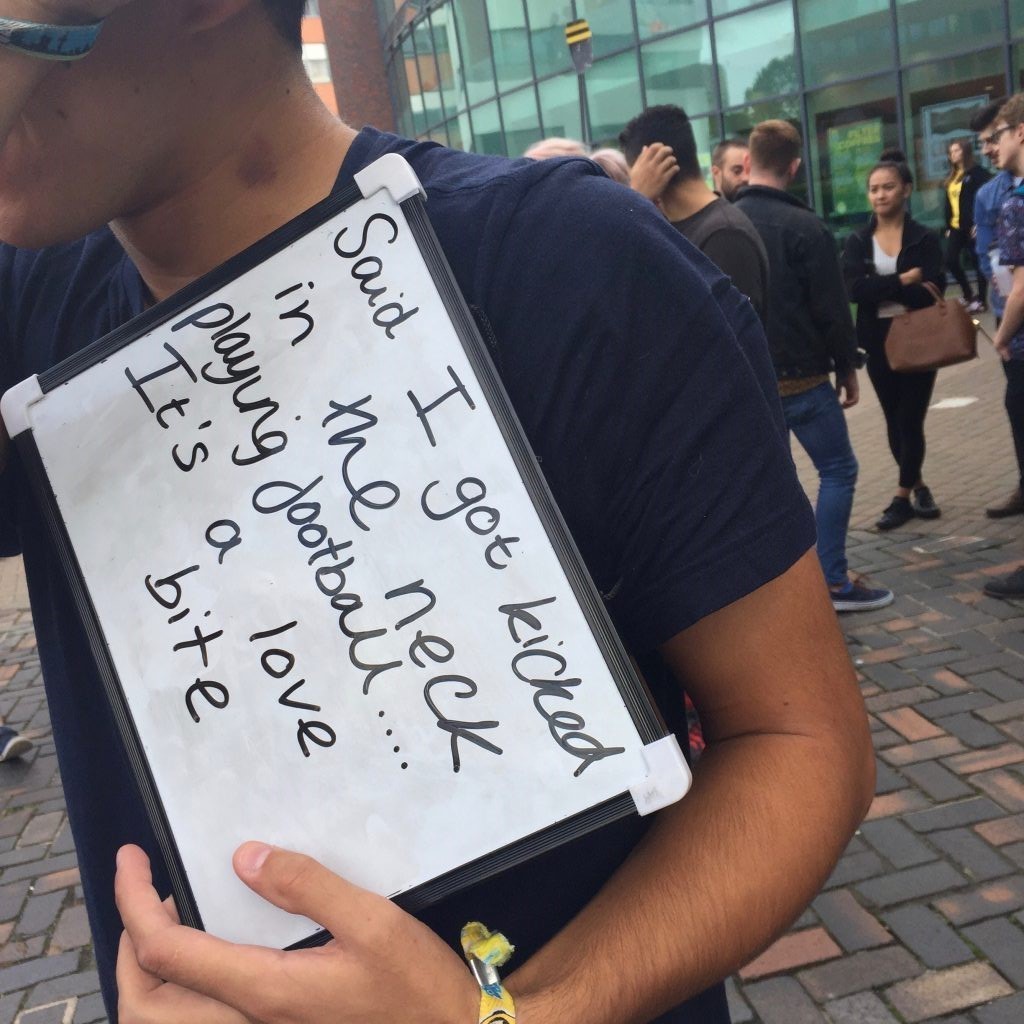 Said I got kicked
in the neck
playing football....
It's a love
bite